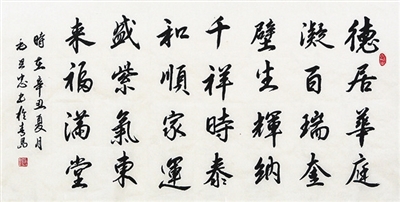 德居華庭
凝百瑞奎
壁生輝納
千祥時泰
和順家運
盛紫氣東
来福滿堂
時在辛丑夏月